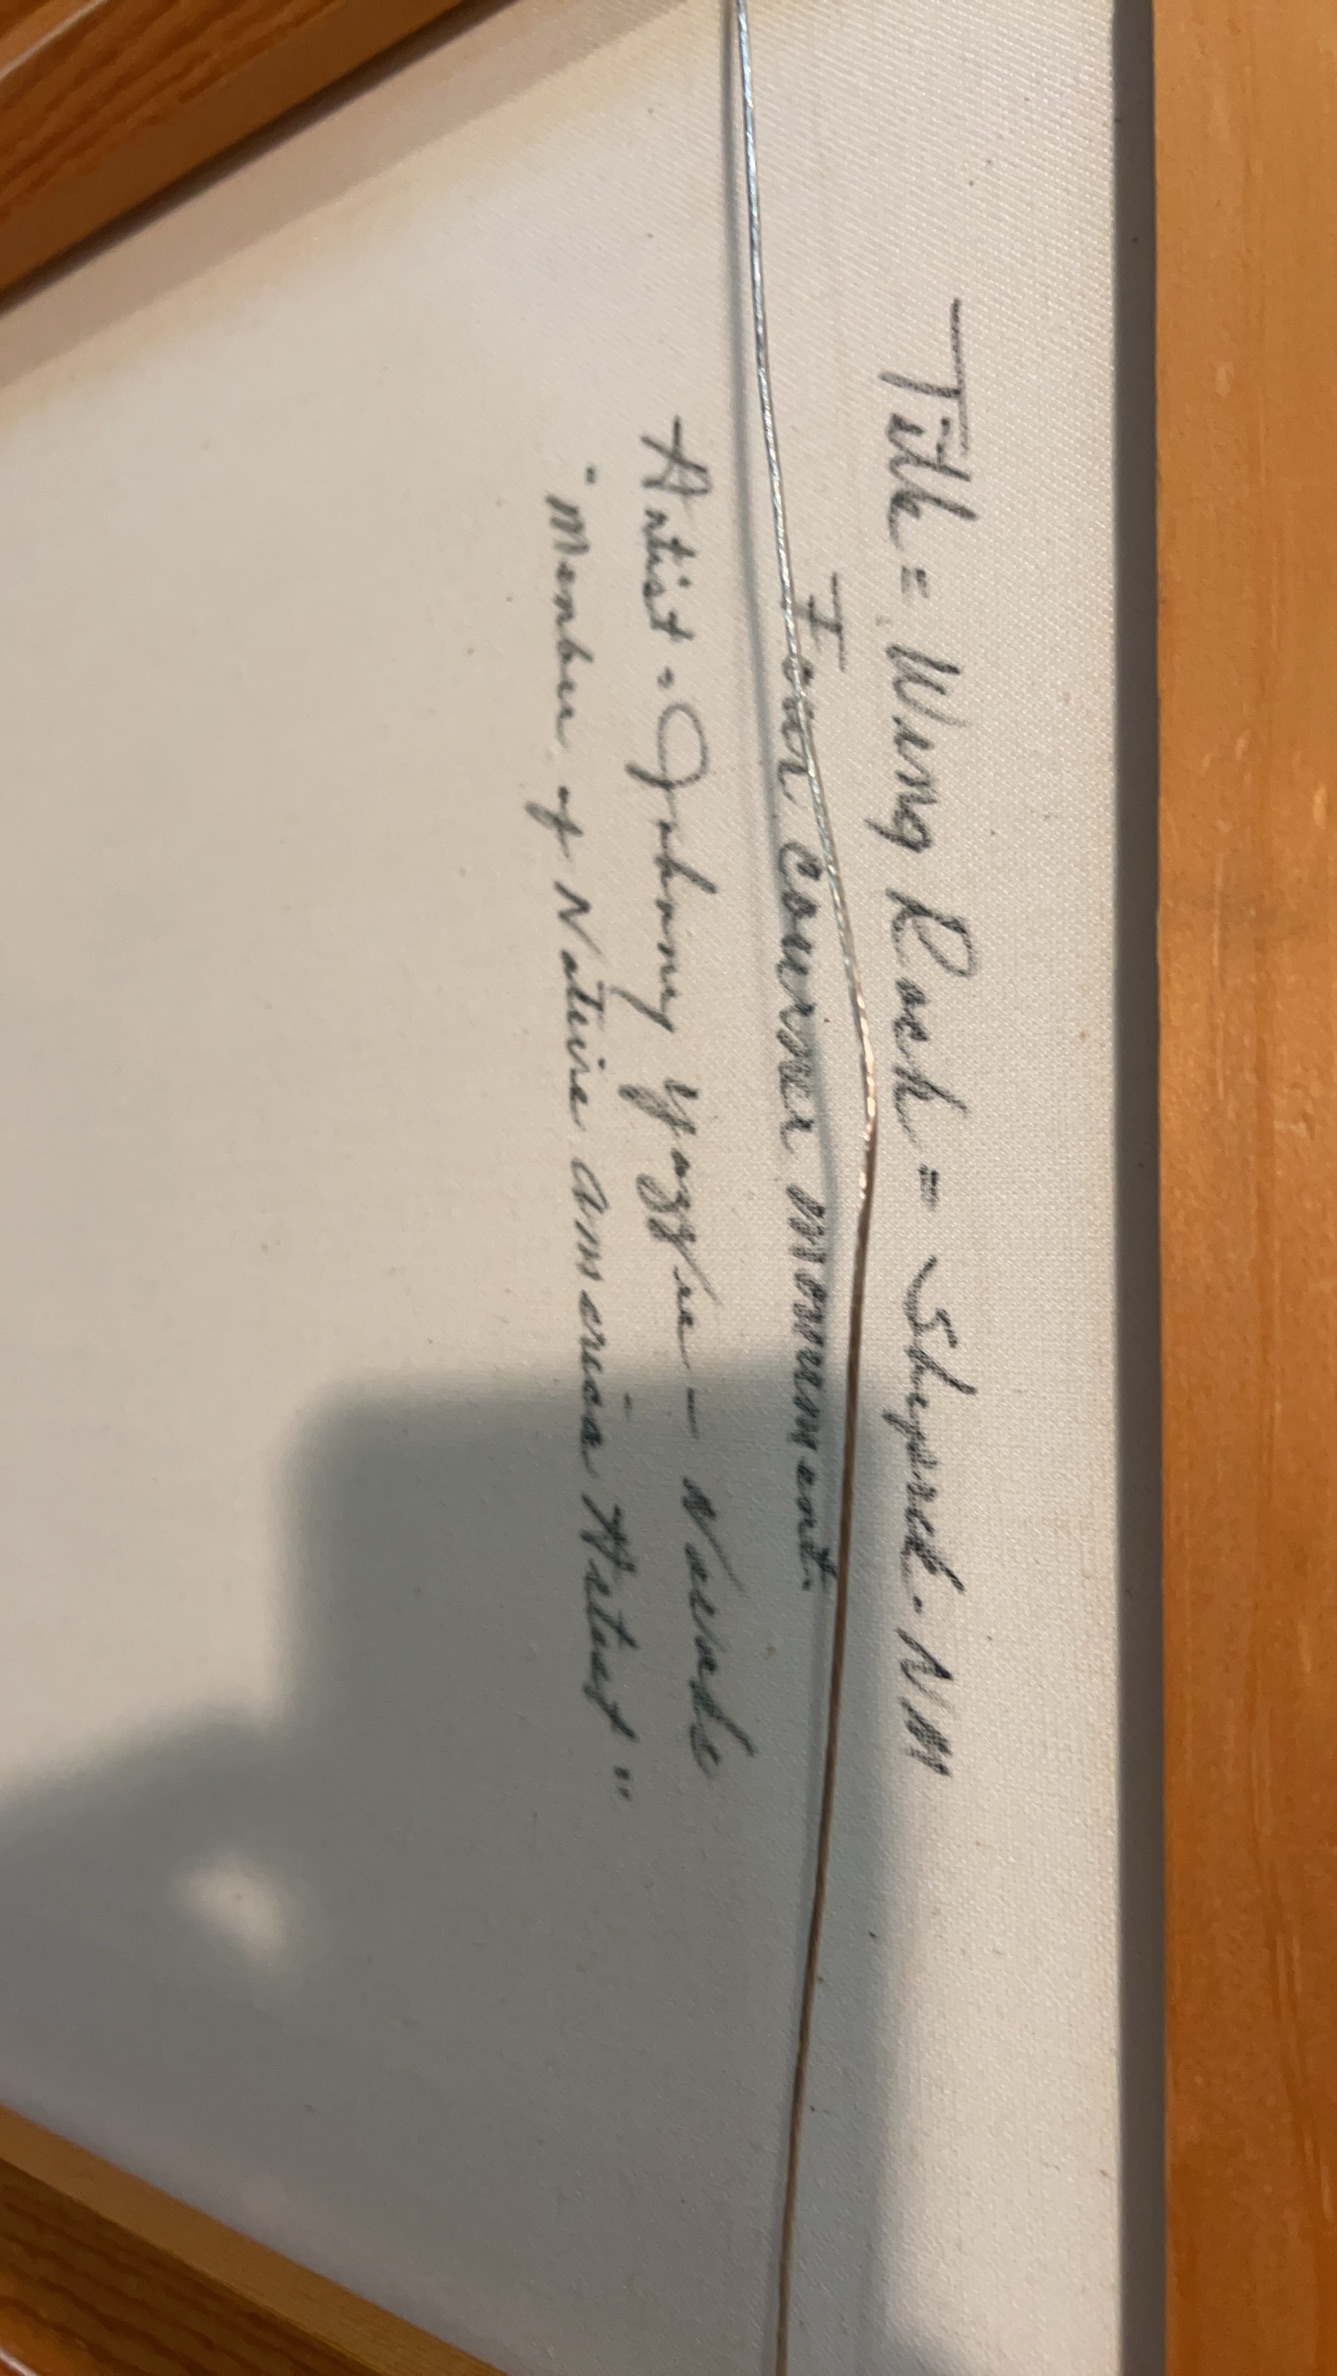 Title = Wing Rock = Shiprock. NM
Four courner monument.
Artist = Johnny Yazzie —
"Member of Native america Artist"